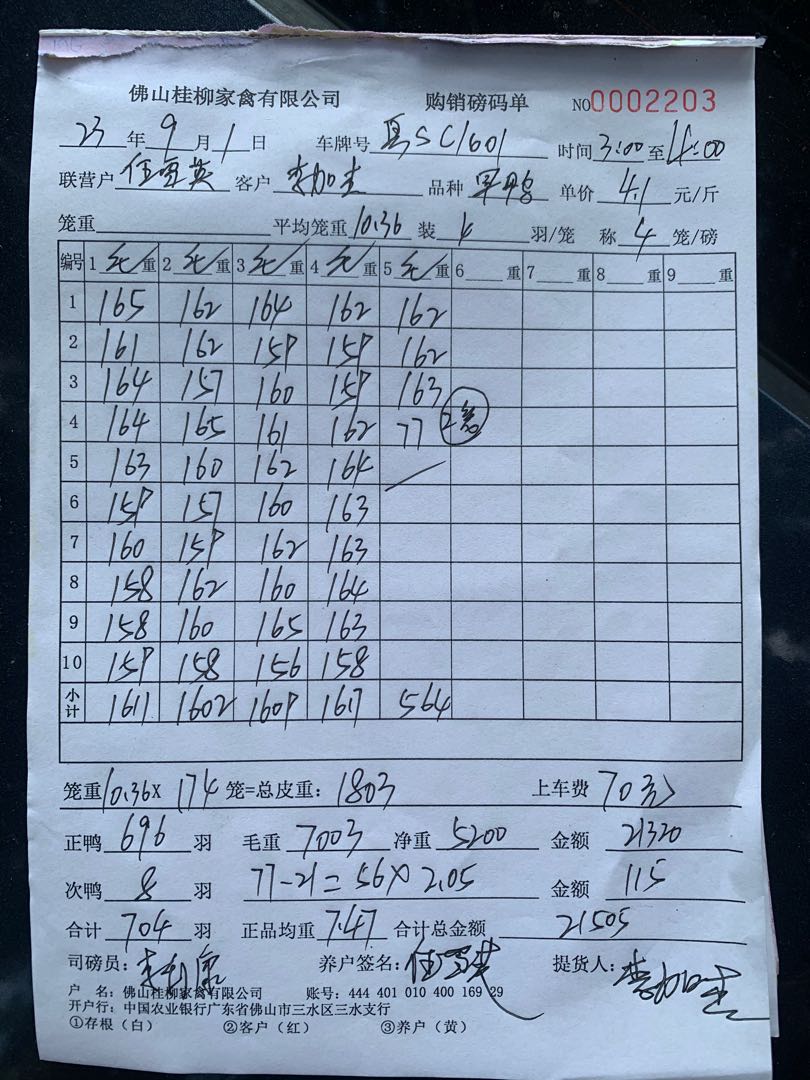 佛山桂柳家禽有限公司 购销磅码单 NO0002203
23年9月1日 车牌号 粤SC1601 时间3:00至4:00
联营户 伍雪英 客户 李加圭 品种 单价 4.1 元/斤
笼重 平均笼重10.36 装 4 羽/笼 称 4 笼/磅
编号 1毛重 2毛重 3毛重 4毛重 5毛重 6重 7重 8重 9重
1 165 162 164 162 162
2 161 162 159 159 162
3 164 157 160 159 163
4 164 165 161 162 77 2笼
5 163 160 162 164
6 159 157 160 163
7 160 159 162 163
8 158 162 160 164
9 158 160 165 163
10 159 158 156 158
小计 1611 1602 1609 1617 564
笼重10.36X 174 笼=总皮重：1803 上车费 70元
正鸭 696 羽 毛重 7003 净重 5200 金额 21320
次鸭 8 羽 77-21=56×2.05 金额 115
合计 704 羽 正品均重 7.47 合计总金额 21505
司磅员： 养户签名： 提货人：李加圭
户 名：佛山桂柳家禽有限公司 账号：444 401 010 400 169 29
开户行：中国农业银行广东省佛山市三水区三水支行
①存根（白） ②客户（红） ③养户（黄）